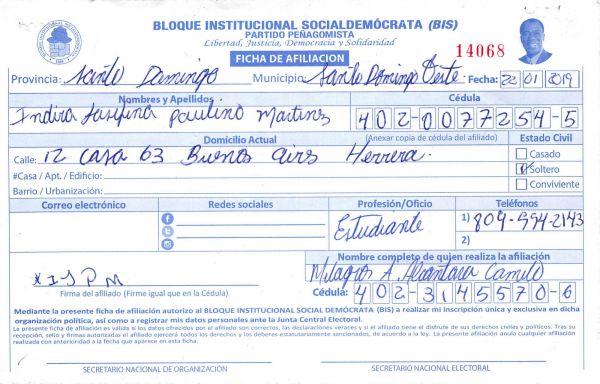 BLOQUE INSTITUCIONAL SOCIALDEMÓCRATA (BIS)
PARTIDO PEÑAGOMISTA
Libertad, Justicia, Democracia y Solidaridad
FICHA DE AFILIACION
14068
Provincia: Santo Domingo Municipio Santo Domingo Oeste Fecha: 22 01 2019
Nombres y Apellidos Cédula
Indira Josefina Paulino Martines 402-0077254-5
Domicilio Actual (Anexar copia de cédula del afiliado) Estado Civil
Calle: 12 casa 63 Buenos aires Herrera.
Casado
#Casa / Apt. / Edificio: Soltero
Barrio / Urbanización: Conviviente
Correo electrónico Redes sociales Profesión/Oficio Teléfonos
Estudiante 1) 809-994-2143
2)
Nombre completo de quien realiza la afiliación
Milagros A. Alcantara Camilo
x I J P M
Cédula: 402-3145570-6
Firma del afiliado (Firme igual que en la Cédula)
Mediante la presente ficha de afiliación autorizo al BLOQUE INSTITUCIONAL SOCIAL DEMÓCRATA (BIS) a realizar mi inscripción única y exclusiva en dicha
organización política, así como a registrar mis datos personales ante la Junta Central Electoral.
La presente ficha de afiliación es válida si los datos ofrecidos por el afiliado son correctos, las declaraciones veraces y si el afiliado tiene el disfrute de sus derechos civiles y políticos. Tras su
recepción, sella y firmas autorizadas el afiliado ejercerá todos los derechos y los deberes estatutariamente sancionados, de acuerdo a la ley. La presente afiliación anula cualquier afiliación
realizada con anterioridad a la fecha que aparece en esta ficha.
SECRETARIO NACIONAL DE ORGANIZACIÓN SECRETARIO NACIONAL ELECTORAL